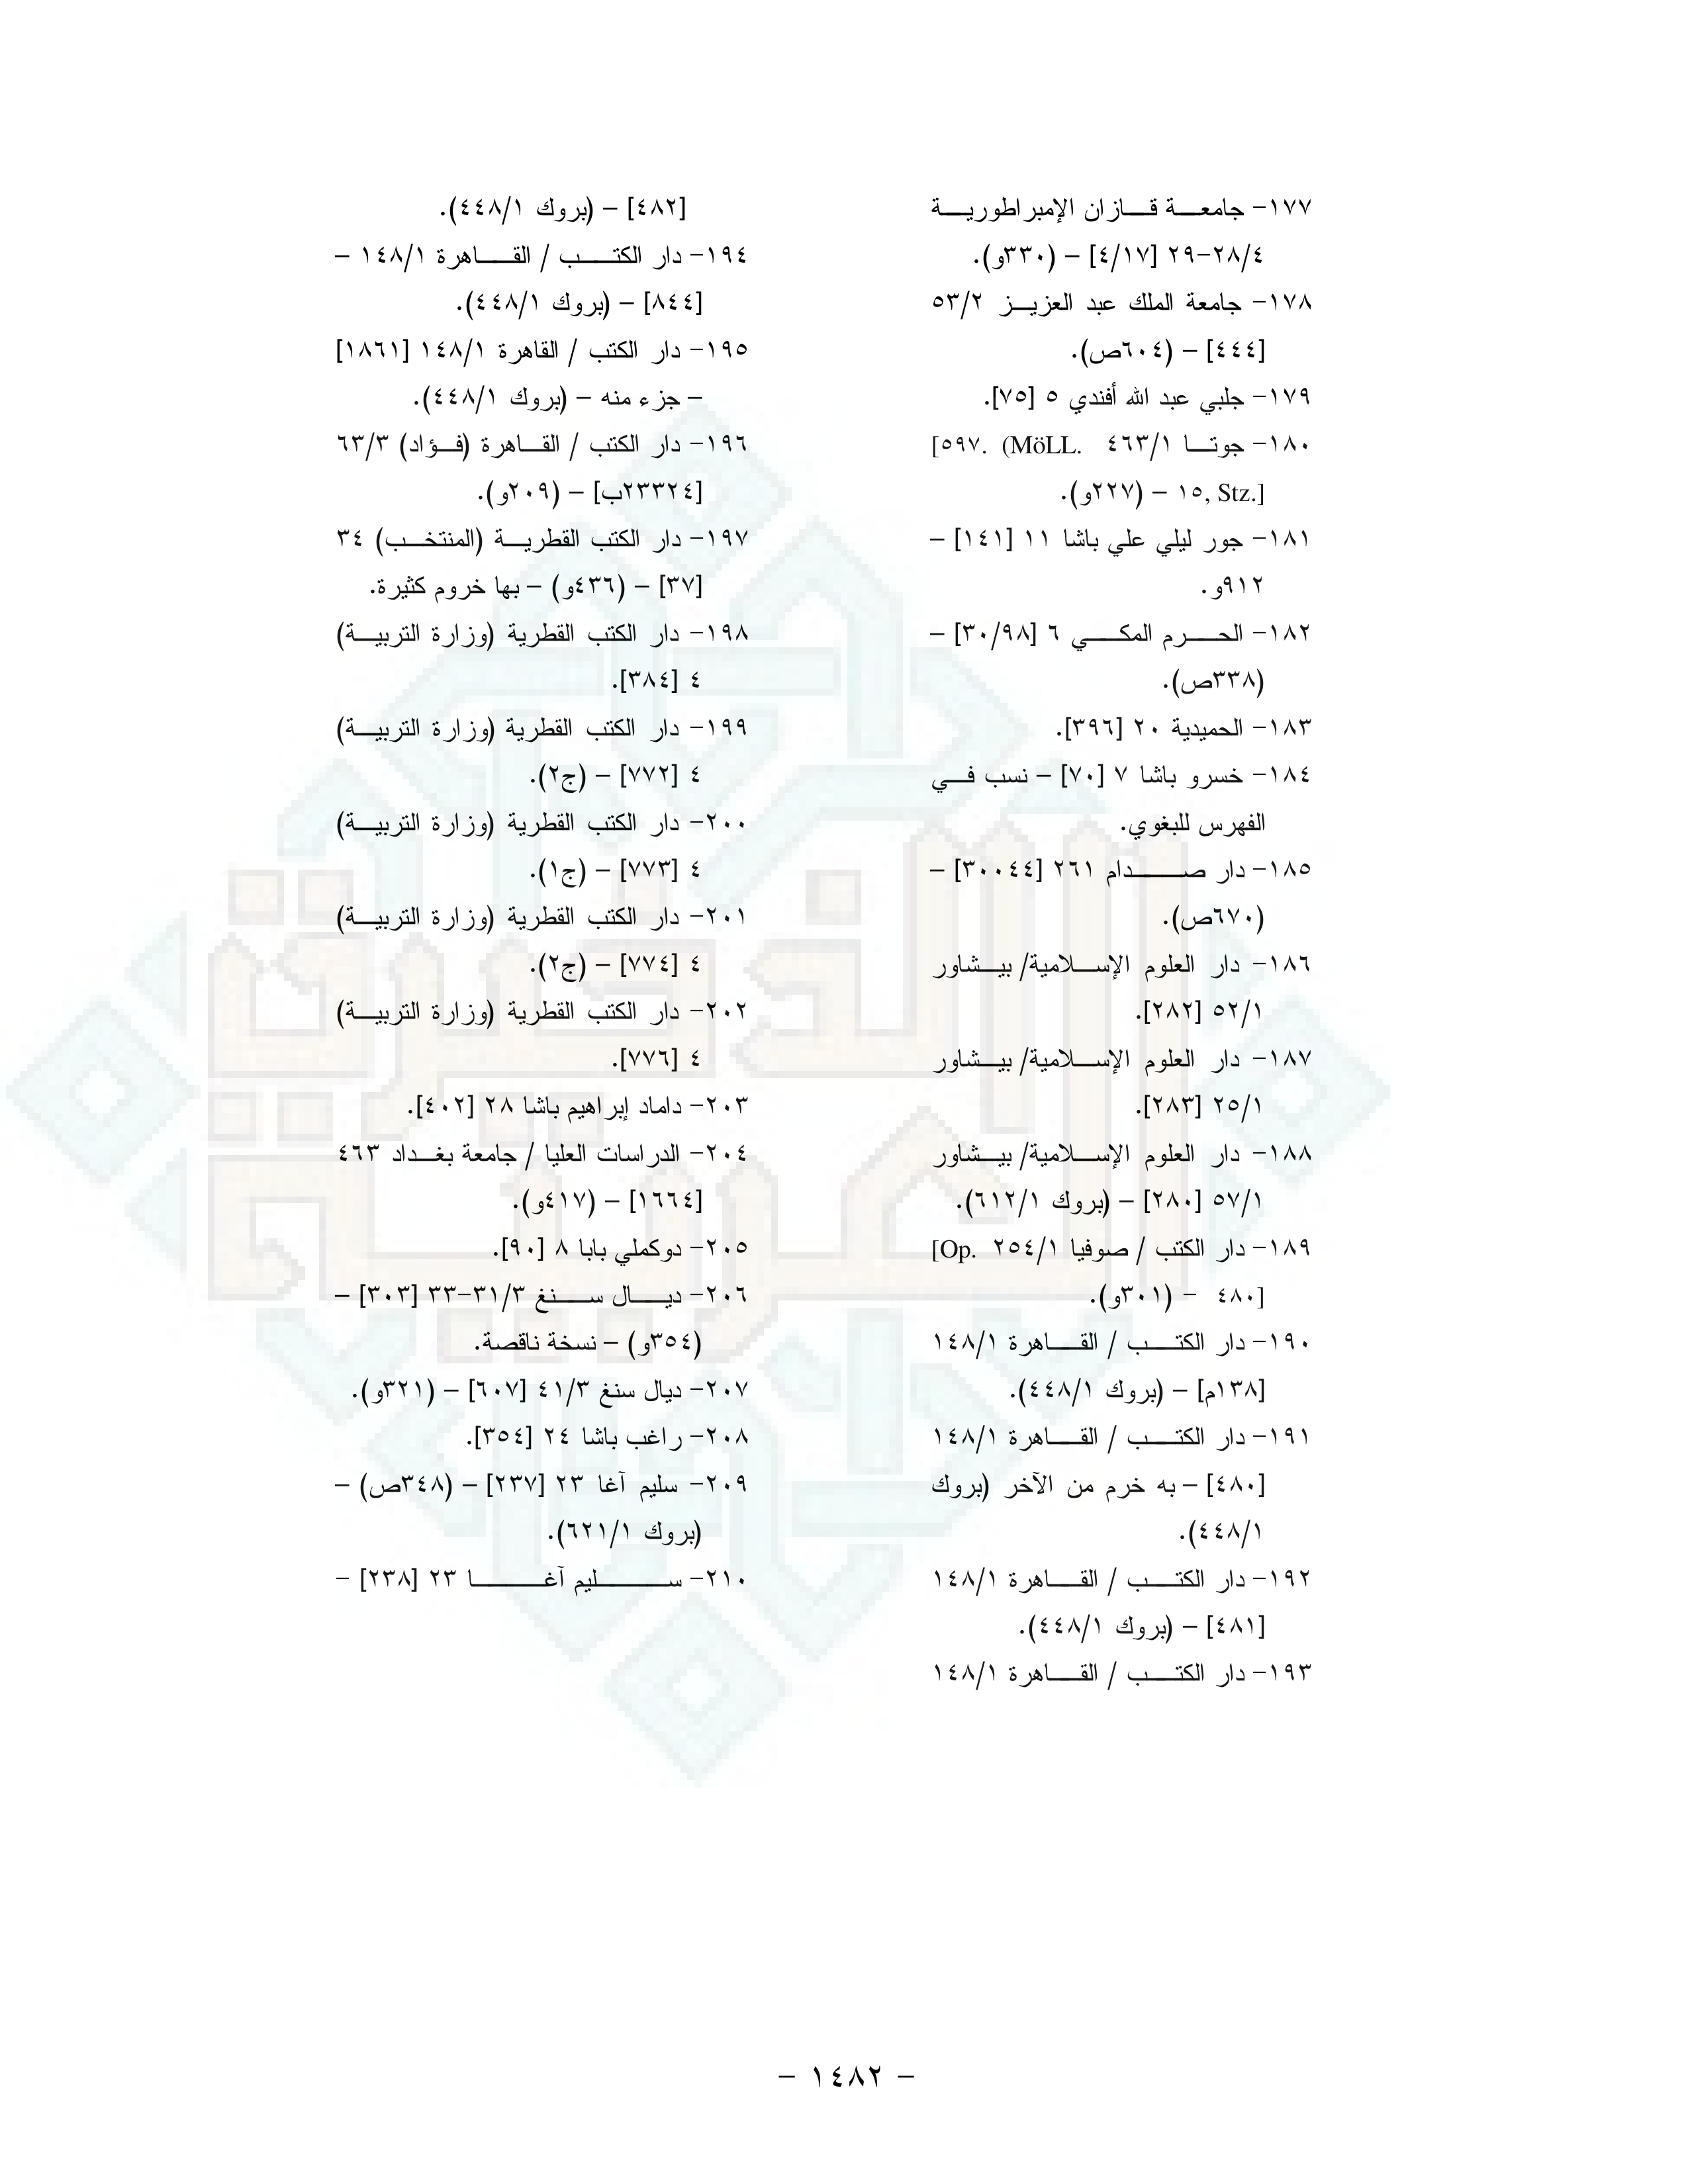 ١٧٧- جامعـــة قـــازان الإمبراطوريـــة
٢٨/٤-٢٩ [٤/١٧] – (٣٣٠و).
١٧٨- جامعة الملك عبد العزيـــز ٥٣/٢
[٤٤٤] – (٦٠٤ص).
١٧٩- جلبي عبد الله أفندي ٥ [٧٥].
١٨٠- جوتـــا ٤٦٣/١ [٥٩٧. (MöLL.
١٥, Stz.] – (٢٢٧و).
١٨١- جور ليلي علي باشا ١١ [١٤١] –
٩١٢و.
١٨٢- الحـــرم المكـــي ٦ [٣٠/٩٨] –
(٣٣٨ص).
١٨٣- الحميدية ٢٠ [٣٩٦].
١٨٤- خسرو باشا ٧ [٧٠] – نسب فـــي
الفهرس للبغوي.
١٨٥- دار صـــدام ٢٦١ [٣٠٠٤٤] –
(٦٧٠ص).
١٨٦- دار العلوم الإســـلامية/ بيـــشاور
٥٢/١ [٢٨٢].
١٨٧- دار العلوم الإســـلامية/ بيـــشاور
٢٥/١ [٢٨٣].
١٨٨- دار العلوم الإســـلامية/ بيـــشاور
٥٧/١ [٢٨٠] – (بروك ٦١٢/١).
١٨٩- دار الكتب / صوفيا ٢٥٤/١ [Op.
٤٨٠] - (٣٠١و).
١٩٠- دار الكتـــب / القـــاهرة ١٤٨/١
[١٣٨م] – (بروك ٤٤٨/١).
١٩١- دار الكتـــب / القـــاهرة ١٤٨/١
[٤٨٠] – به خرم من الآخر (بروك
٤٤٨/١).
١٩٢- دار الكتـــب / القـــاهرة ١٤٨/١
[٤٨١] – (بروك ٤٤٨/١).
١٩٣- دار الكتـــب / القـــاهرة ١٤٨/١
[٤٨٢] – (بروك ٤٤٨/١).
١٩٤- دار الكتـــب / القـــاهرة ١٤٨/١ –
[٨٤٤] – (بروك ٤٤٨/١).
١٩٥- دار الكتب / القاهرة ١٤٨/١ [١٨٦١]
– جزء منه – (بروك ٤٤٨/١).
١٩٦- دار الكتب / القـــاهرة (فـــؤاد) ٦٣/٣
[٢٣٣٢٤ب] – (٢٠٩و).
١٩٧- دار الكتب القطريـــة (المنتخـــب) ٣٤
[٣٧] – (٤٣٦و) – بها خروم كثيرة.
١٩٨- دار الكتب القطرية (وزارة التربيـــة)
٤ [٣٨٤].
١٩٩- دار الكتب القطرية (وزارة التربيـــة)
٤ [٧٧٢] – (ج٢).
٢٠٠- دار الكتب القطرية (وزارة التربيـــة)
٤ [٧٧٣] – (ج١).
٢٠١- دار الكتب القطرية (وزارة التربيـــة)
٤ [٧٧٤] – (ج٢).
٢٠٢- دار الكتب القطرية (وزارة التربيـــة)
٤ [٧٧٦].
٢٠٣- داماد إبراهيم باشا ٢٨ [٤٠٢].
٢٠٤- الدراسات العليا / جامعة بغـــداد ٤٦٣
[١٦٦٤] – (٤١٧و).
٢٠٥- دوكملي بابا ٨ [٩٠].
٢٠٦- ديـــال ســـنغ ٣١/٣-٣٣ [٣٠٣] –
(٣٥٤و) – نسخة ناقصة.
٢٠٧- ديال سنغ ٤١/٣ [٦٠٧] – (٣٢١و).
٢٠٨- راغب باشا ٢٤ [٣٥٤].
٢٠٩- سليم آغا ٢٣ [٢٣٧] – (٣٤٨ص) –
(بروك ٦٢١/١).
٢١٠- ســـليم آغـــا ٢٣ [٢٣٨] –
– ١٤٨٢ –
الذخيرة
العربية